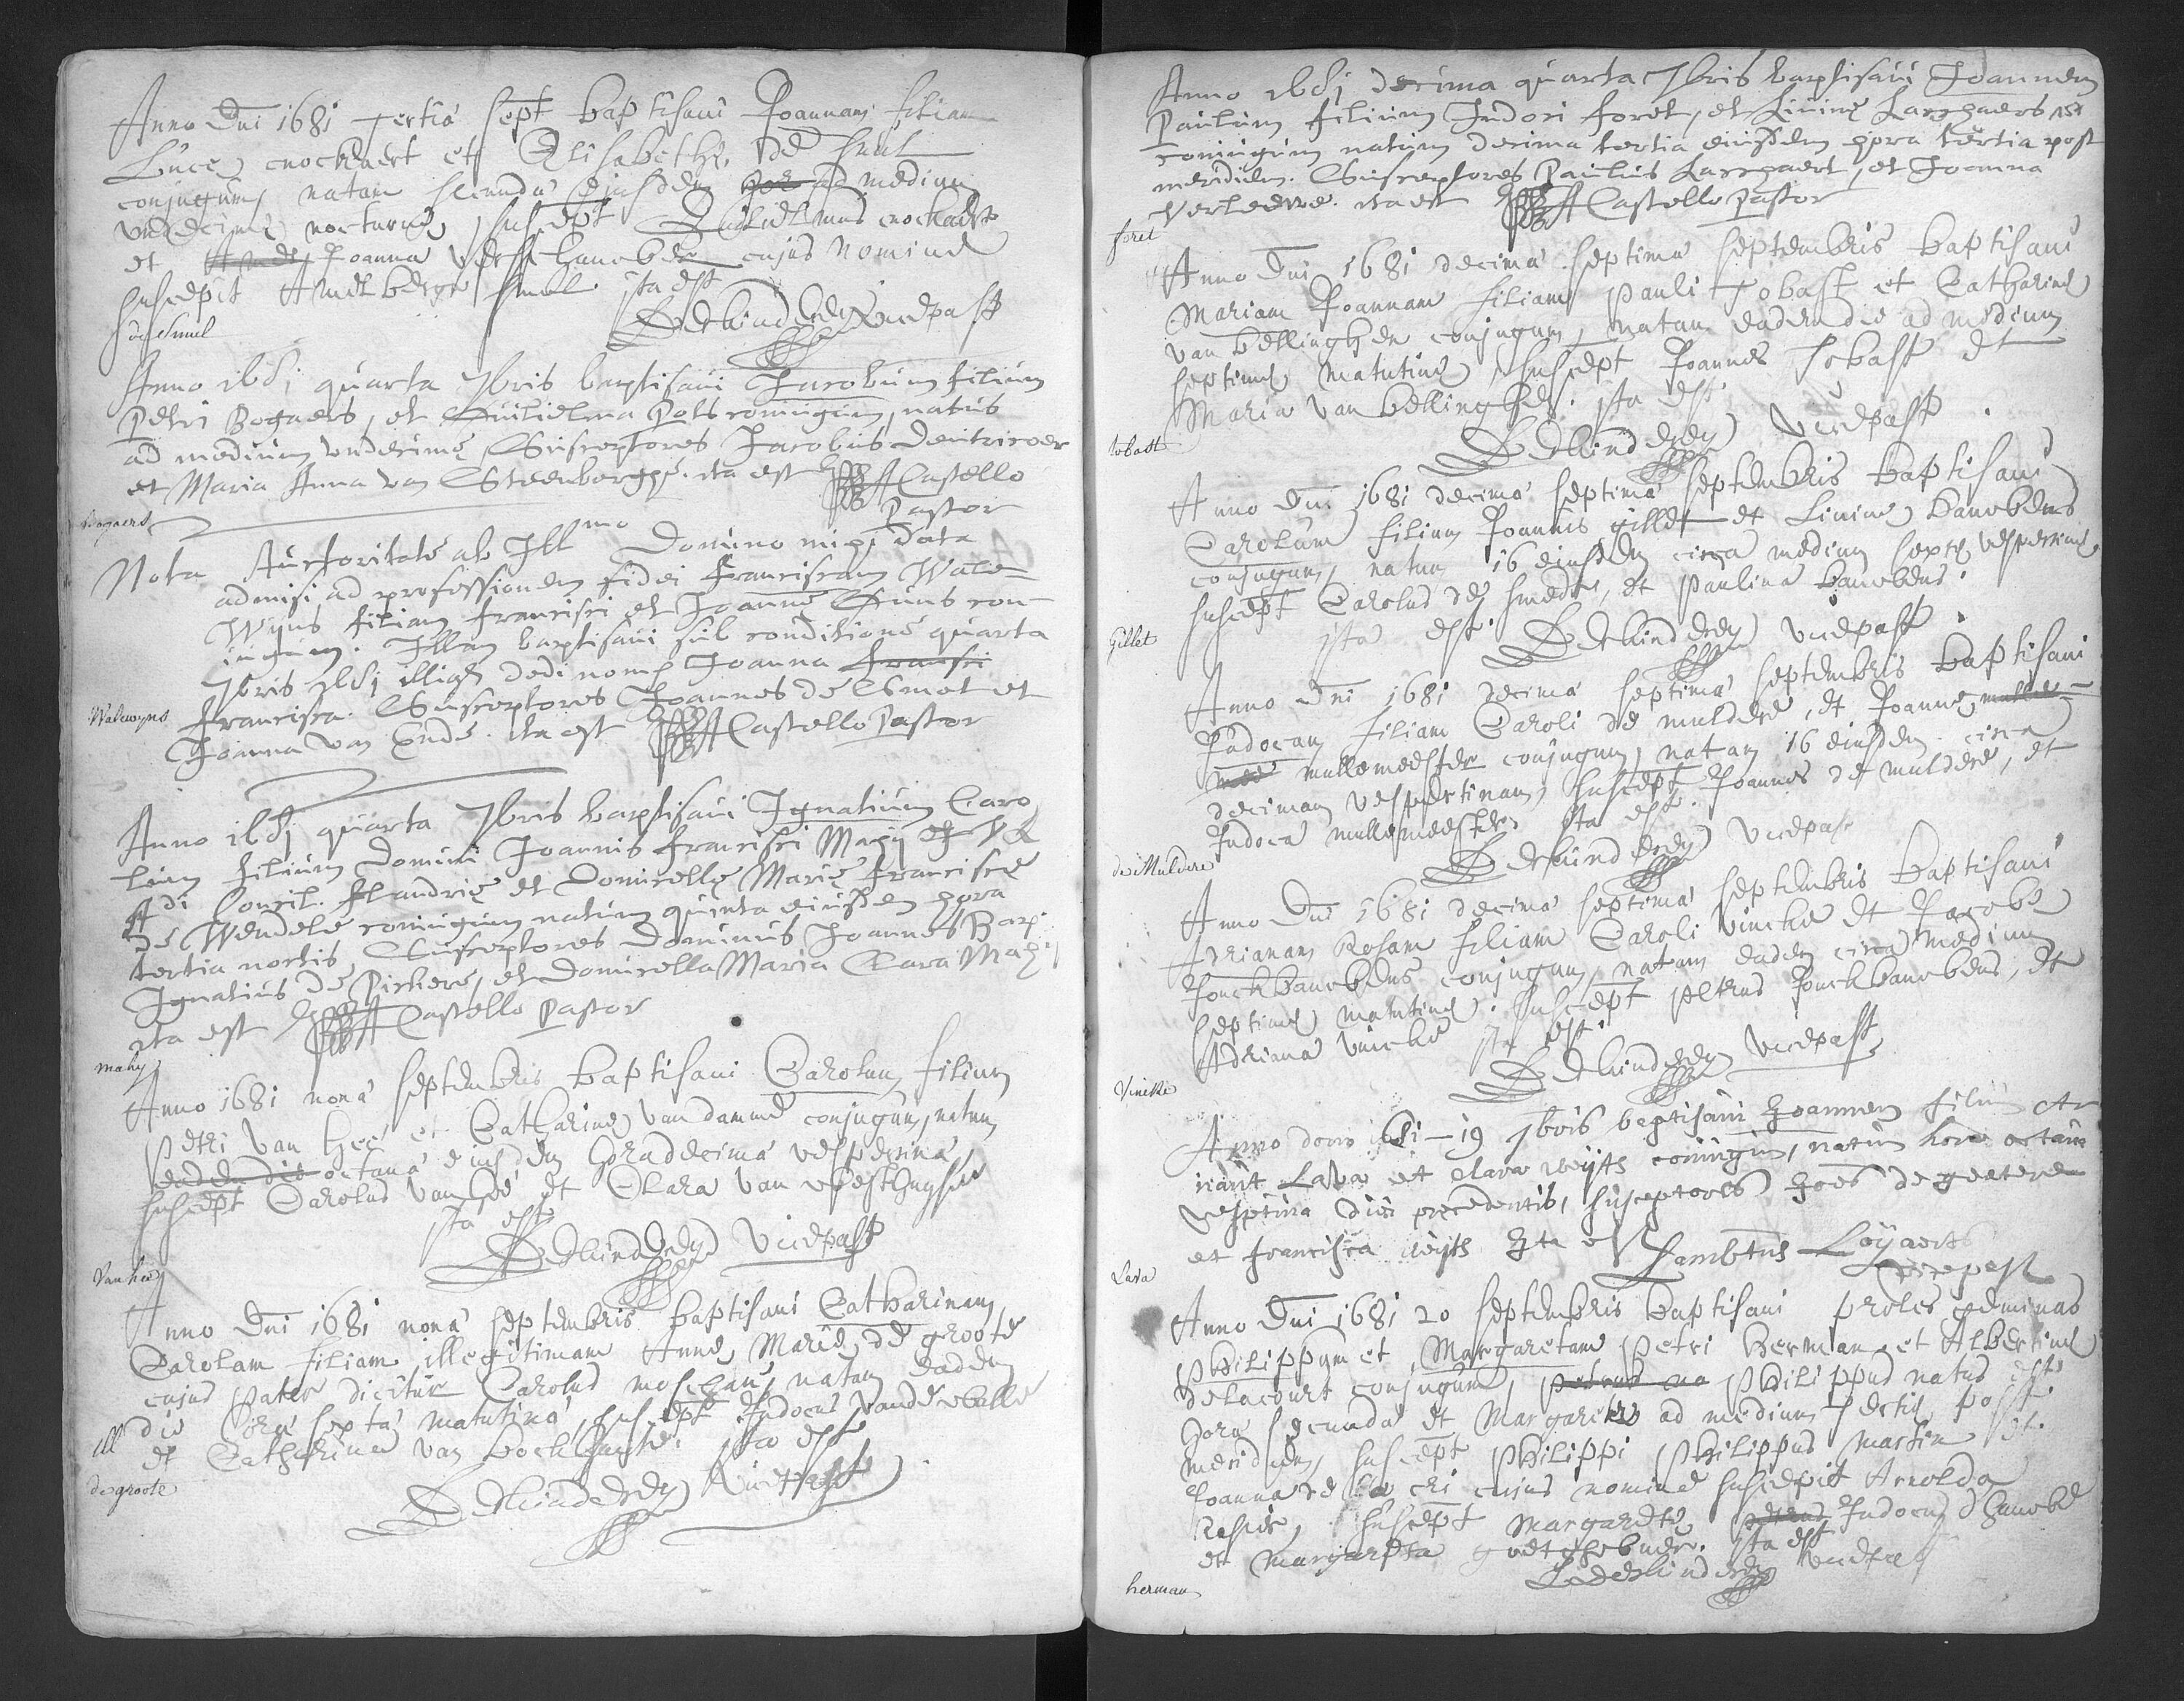 Anno Dni 1681 tertia sept baptisavi Joannam filiam
Lucę crockaert et Elisabethę de smul
conjugum natam secunda ejusdem ad medium
undecimę nocturnę, suscept Guilielmus crockaert
et Joanna cujus nomine
suscepit Amelberga smul. ita est
vicepast
de smul
Anno 1681 quarta 7bris baptisavi Jacobum filium
Petri Bogaers, et Guilielma Pots coniugum, natus
ad medium undecimę, Susceptores Jacobus
et Maria Anna van Steenberghe. ita est A Castello
Pastor
Bogaers
Nota Auctoritate ab Ill mo Domino mihi data
admisi ad professionem fidei Franciscam Wale-
Wyns filiam Francisci et Joannę con-
iugum. Illam baptisavi sub conditione quarta
7bris 1681 illiqz dedi nomen Joanna
Francisca. Susceptores Joannes de Smet et
Joanna van Ende. ita est A Castello Pastor
Walewyns
Anno 1681 quarta 7bris baptisavi Ignatium Caro
lum filium Domini Joannis Francisci Mahy
Concil. Flandrię et Domicellę Marię Franciscę
de Wendele coniugum natum quinta eiusdem hora
tertia noctis, Susceptores Dominus Joannes Bap.
Ignatius de et Domicella Maria Clara Mahy
ita est A Castello Pastor
mahy
Anno 1681 nona septembris baptisavi Carolum filium
Petri van hee et Catharinę van damme conjugum, natum
eadem die octava eiusdem hora decima vespertina,
suscept Carolus van hee et Clara van
ita est
vicepast
Van hee
Anno Dni 1681 nona septembris baptisavi Catharinam
Carolam filiam illegitimam Annę Marię de groote
cujus pater dicitur Carolus natam eadem
ill die hora septa matutina, suscept Judocus
et Catharina van ita est
de groote
vicepast
Anno 1681 decima quarta 7bris baptisavi Joannem 151
Paulum filium Judoci foret, et Livinę Larghaers
coniugum natum decima tertia eiusdem hora tertia post
meridiem. Susceptores Paulus Larghaert, et Joanna
Verleeve. ita est A Castello Pastor
foret
Anno Dni 1681 decima septima septembris baptisavi
Mariam Joannam filiam Pauli Tobast et Catharinę
van bellinghen conjugum, natam eadem die ad medium
septimę matutinę suscept Joannes Tobast et
Maria van bellinghen. ita est.
vicepast
tobast
Anno Dni 1681 decima septima septembris baptisavi
Carolum filium Joannis gillet et Livinę
conjugum, natum 16 eiusdem circa medium septę vespertinę
suscept Carolus de smedt, et Paulina
ita est.
vicepast
Gillet
Anno Dni 1681 decima septima septembris baptisavi
Judocam filiam Caroli de muldere, et Joannę
mullemeester conjugum, natam 16 eiusdem circa
decimam vespertinam, suscept Joannes de muldere, et
Judoca mullemeester ita est.
vicepast
de Muldere
Anno Dni 1681 decima septima septembris baptisavi
Adrianam Rosam filiam Caroli vincke et Jacobę
conjugum, natam eadem circa medium
septimę matutinę. suscept Petrus et
Adriana vincke ita est.
vicepast
Vincke
Anno domi 1681 - 19 7bris baptisavi Joannem filiu
Lava et clara weyts coniugu, natum hora octava
vesptina diei precedentis, susceptores Joes de
et francisca weyts Ita est Lambtus Loyaerts
vicepast
Lava
Anno Dni 1681 20 septembris baptisavi proles geminas
Philippum et Margaretam Petri herman et Albertinę
delacourt conjugum, Philippus natus est
hora secunda et Margareta ad medium tertię post
meridiem, suscept Philippi Philippus martin et
Joanna cujus nomine suscepit Arnolda
suscept Margaretę Judocus
et Margareta ita est
vicepast
herman